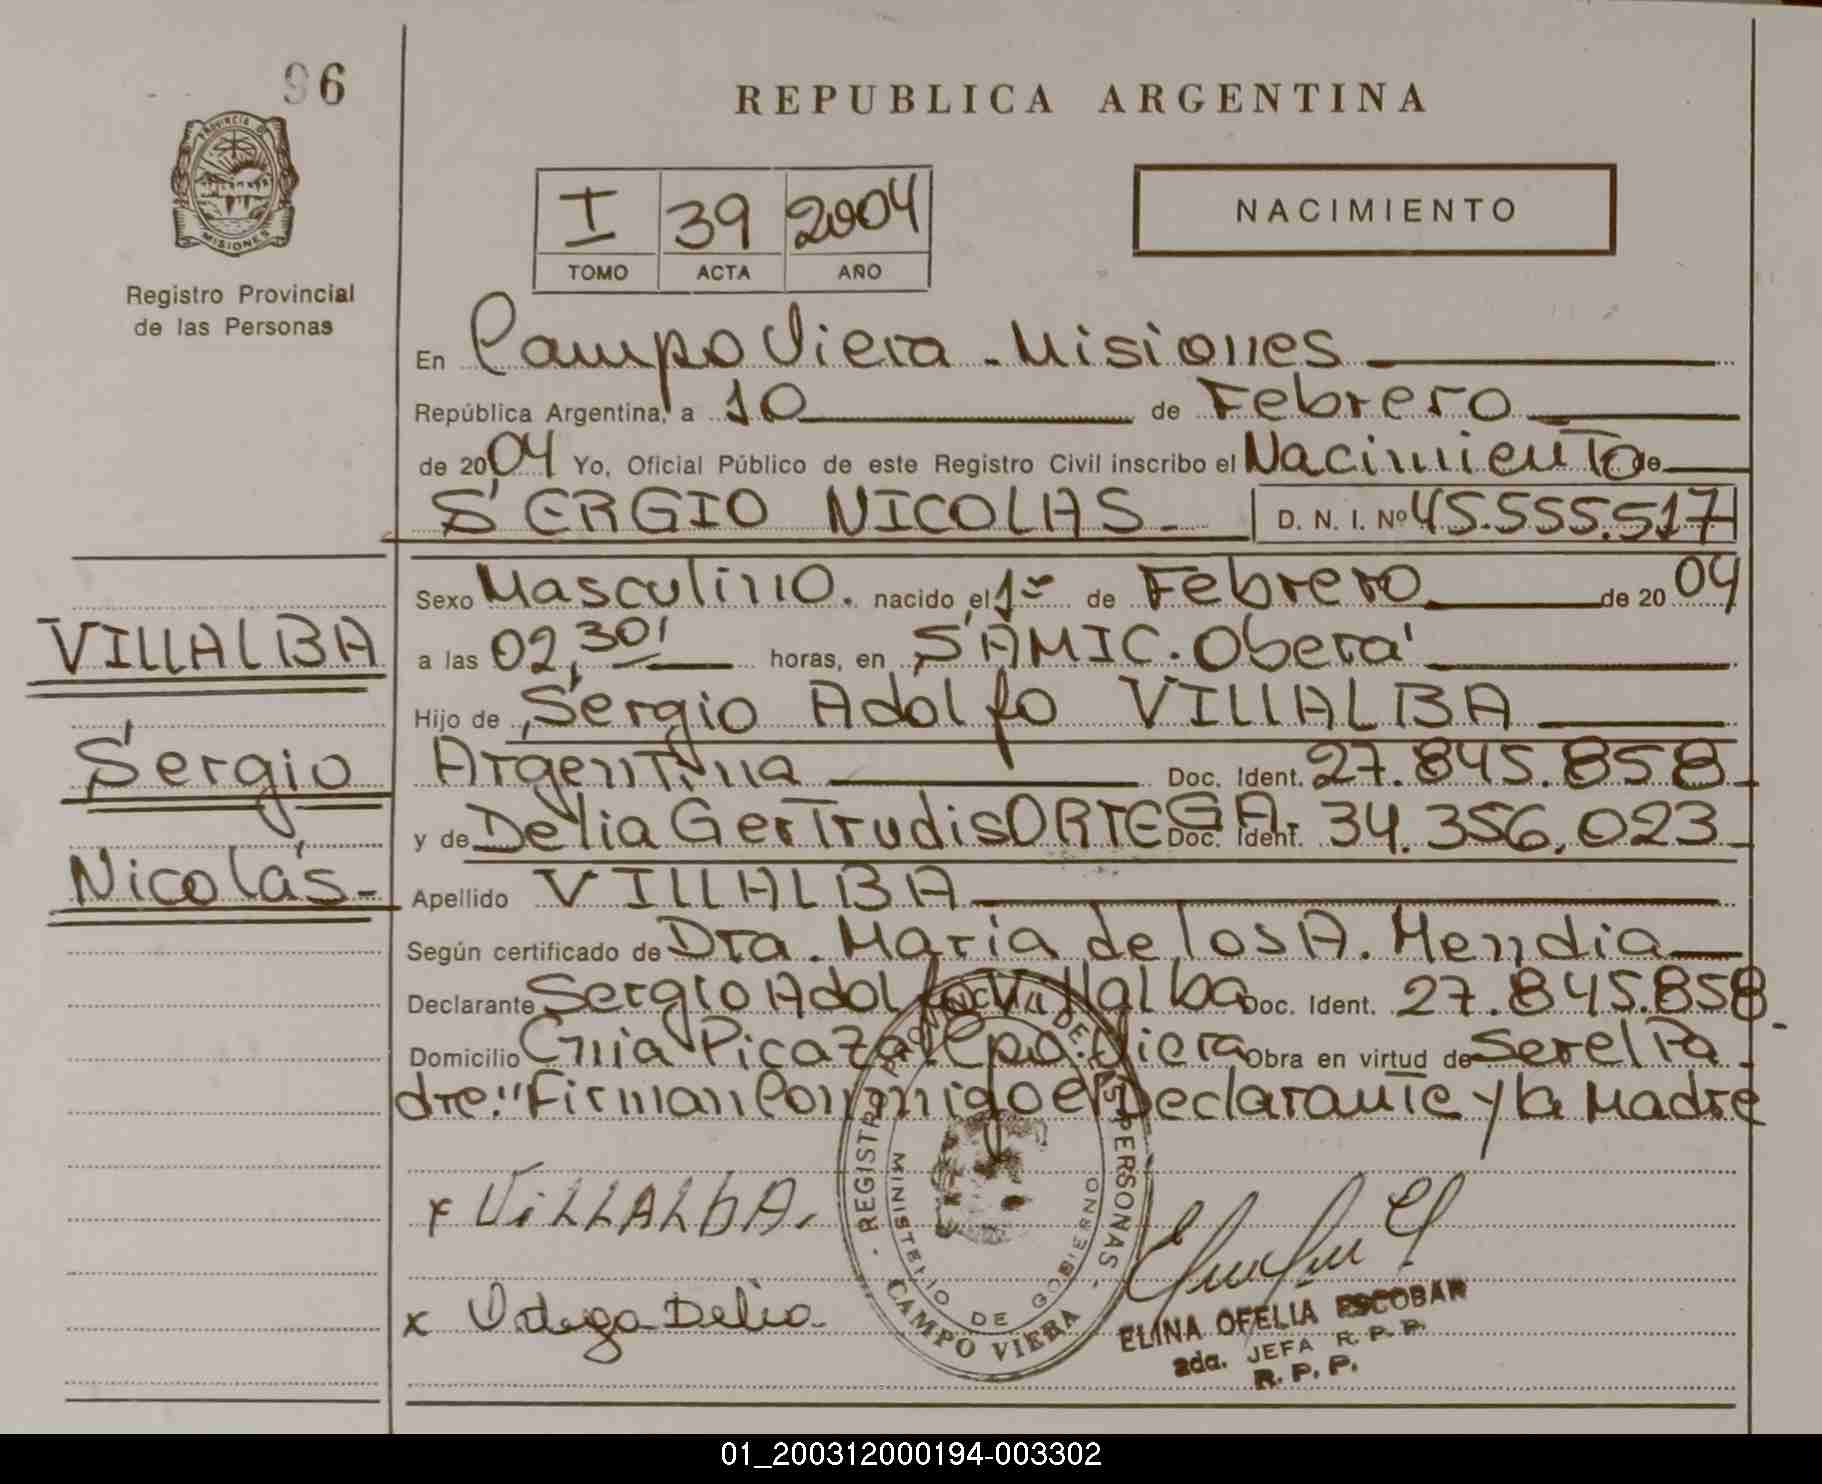 96
PROVINCIA DE
MISIONES
Registro Provincial
de las Personas
REPUBLICA ARGENTINA
I 39 2004
TOMO ACTA AÑO
NACIMIENTO
En Campo Viera - Misiones
República Argentina, a 10 de Febrero
de 2004 Yo, Oficial Público de este Registro Civil inscribo el Nacimiento de
SERGIO NICOLAS - D. N. I. Nº 45.555.517
Sexo Masculino. nacido el 1º de Febrero de 2004
VILLALBA
a las 02,30' horas, en SAMIC. Oberá
Hijo de Sergio Adolfo VILLALBA
Sergio
Argentina Doc. Ident. 27.845.858
y de Delia Gertrudis ORTEGA Doc. Ident. 34.356.023
Nicolás -
Apellido VILLALBA
Según certificado de Dra. María de los A. Mendia
Declarante Sergio Adolfo Villalba Doc. Ident. 27.845.858
Domicilio Cnia Picaza Cpo. Viera Obra en virtud de Ser el Pa
dre." Firman Conmigo el Declarante y la Madre
x ViLLALbA.
x Ortega Delia
REGISTRO PROVINCIAL DE LAS PERSONAS
MINISTERIO DE GOBIERNO
CAMPO VIERA
ELINA OFELIA ESCOBAR
2da. JEFA R. P. P.
R. P. P.
01_200312000194-003302